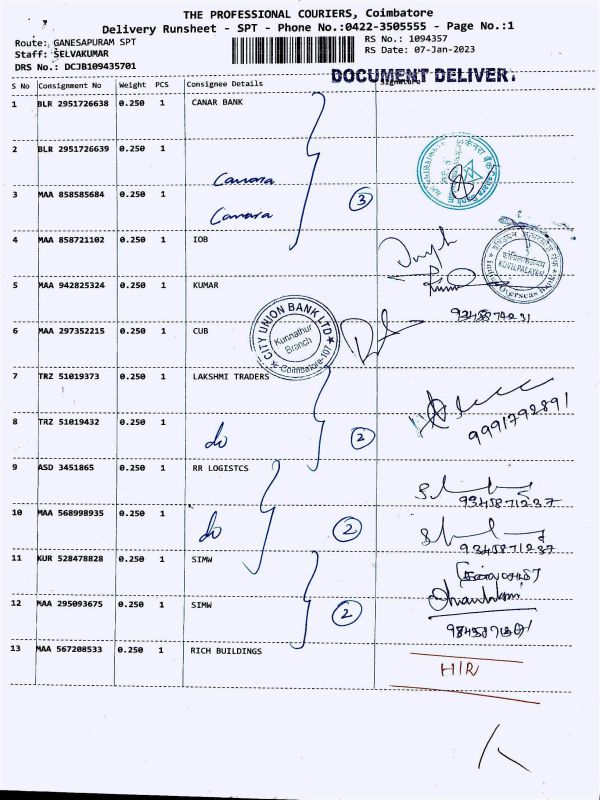 THE PROFESSIONAL COURIERS, Coimbatore
Delivery Runsheet - SPT - Phone No.:0422-3505555 - Page No.:1
Route: GANESAPURAM SPT
RS No.: 1094357
Staff: SELVAKUMAR
RS Date: 07-Jan-2023
DRS No.: DCJB109435701
DOCUMENT DELIVER
S No Consignment No Weight PCS Consignee Details Signature
1 BLR 2951726638 0.250 1 CANAR BANK
2 BLR 2951726639 0.250 1
Canara
3 MAA 858585684 0.250 1
3
Canara
4 MAA 858721102 0.250 1 IOB
KOVILPALAYAM
Overseas Bank
5 MAA 942825324 0.250 1 KUMAR
6 MAA 297352215 0.250 1 CUB
CITY UNION BANK LTD
Kunnathur
Branch
Coimbatore-107
7 TRZ 51019373 0.250 1 LAKSHMI TRADERS
8 TRZ 51019432 0.250 1
do 2
9991792891
9 ASD 3451865 0.250 1 RR LOGISTCS
9345871237
10 MAA 568998935 0.250 1
do 2
9345871237
11 KUR 528478828 0.250 1 SIMW
12 MAA 295093675 0.250 1 SIMW
2
13 MAA 567208533 0.250 1 RICH BUILDINGS
H/R